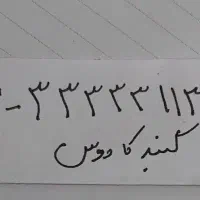 -۳۳۳۳۳۱۱۳
گنبد کاووس